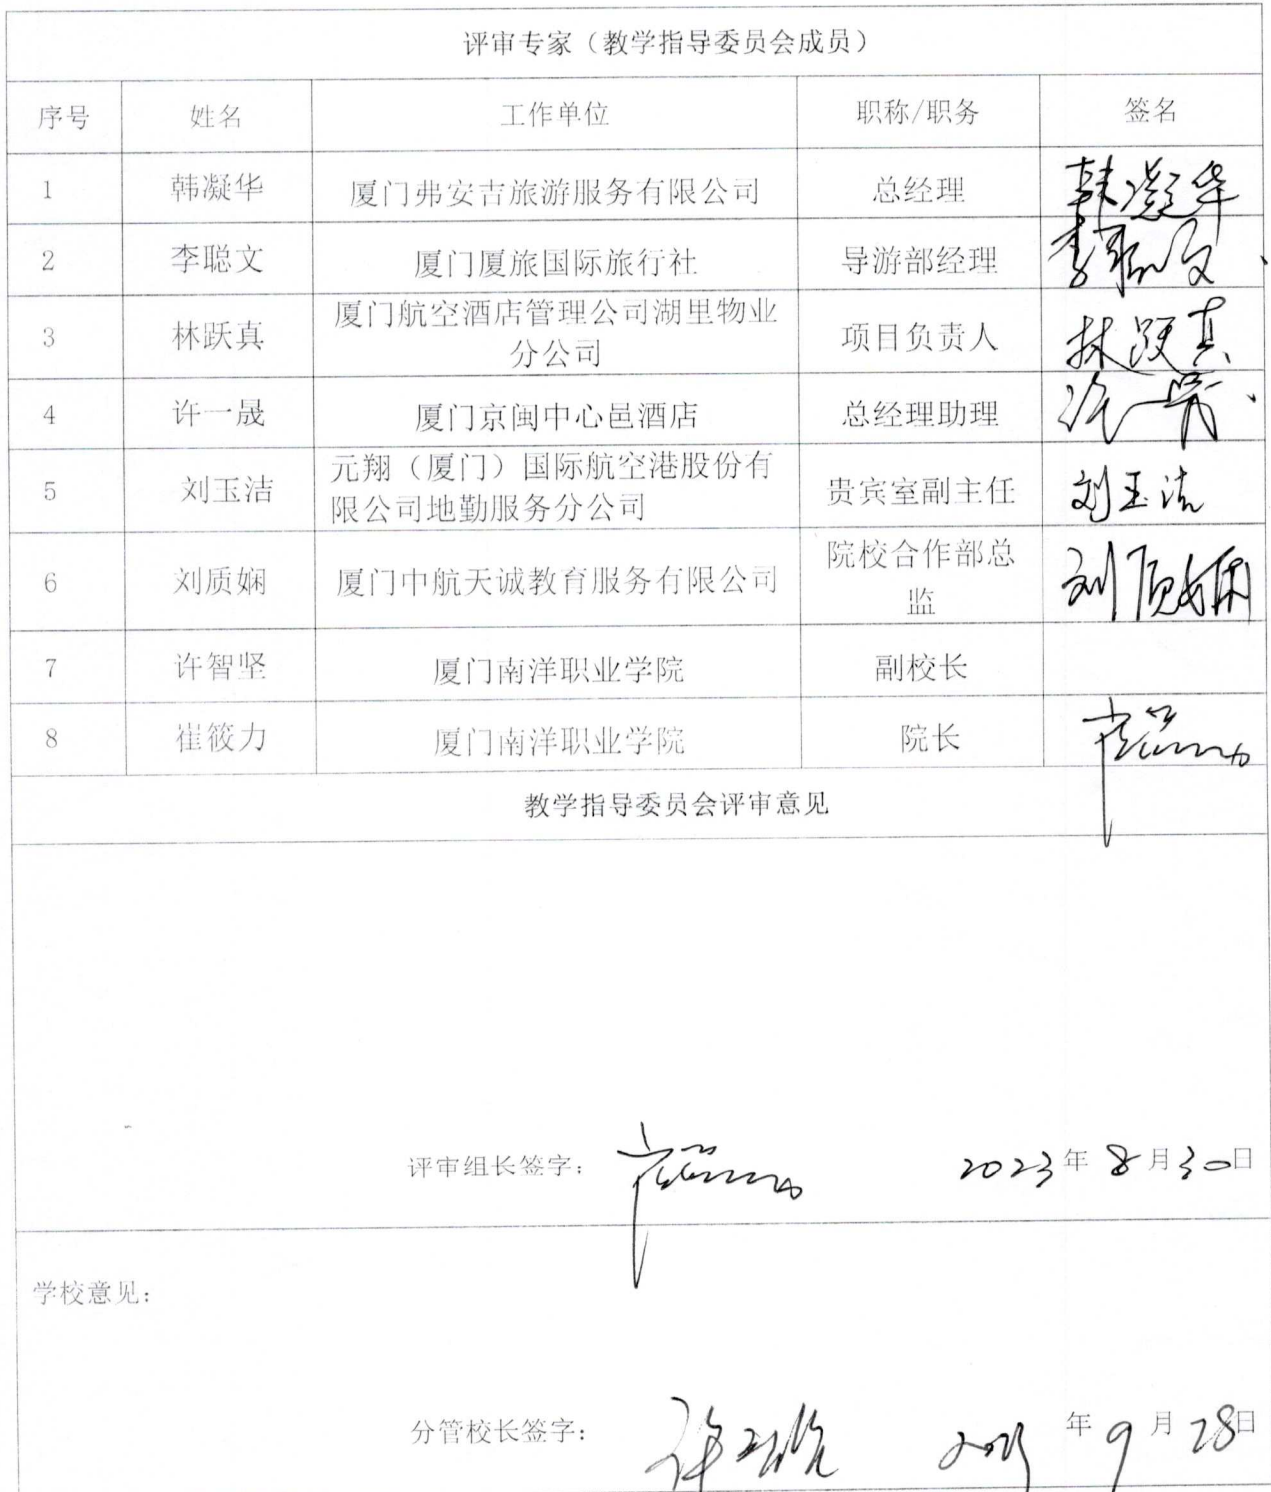 评审专家（教学指导委员会成员）
序号 姓名 工作单位 职称/职务 签名
1 韩凝华 厦门弗安吉旅游服务有限公司 总经理 韩凝华
2 李聪文 厦门厦旅国际旅行社 导游部经理 李聪文
3 林跃真 厦门航空酒店管理公司湖里物业
分公司 项目负责人 林跃真
4 许一晟 厦门京闽中心邑酒店 总经理助理 许一晟
5 刘玉洁 元翔（厦门）国际航空港股份有
限公司地勤服务分公司 贵宾室副主任 刘玉洁
6 刘质娴 厦门中航天诚教育服务有限公司 院校合作部总
监 刘质娴
7 许智坚 厦门南洋职业学院 副校长
8 崔筱力 厦门南洋职业学院 院长 崔筱力
教学指导委员会评审意见
评审组长签字： 崔筱力 2023年8月30日
学校意见：
分管校长签字： 年9月28日